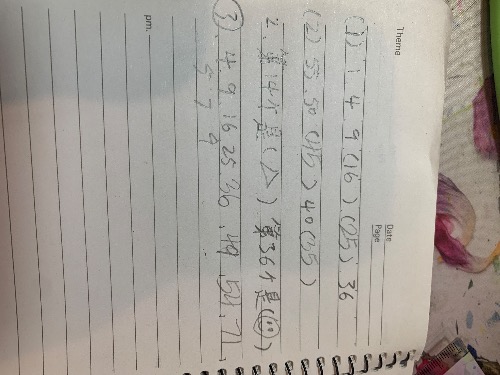 Theme
Date
Page
(1) 1 4 9 (16) (25) 36
(2) 55.50 (45) 40 (35)
2. 第14个是(△) 第36个是( )
③. 4 9 16 25 36 .49. 54. 71.
5 7 9
pm.